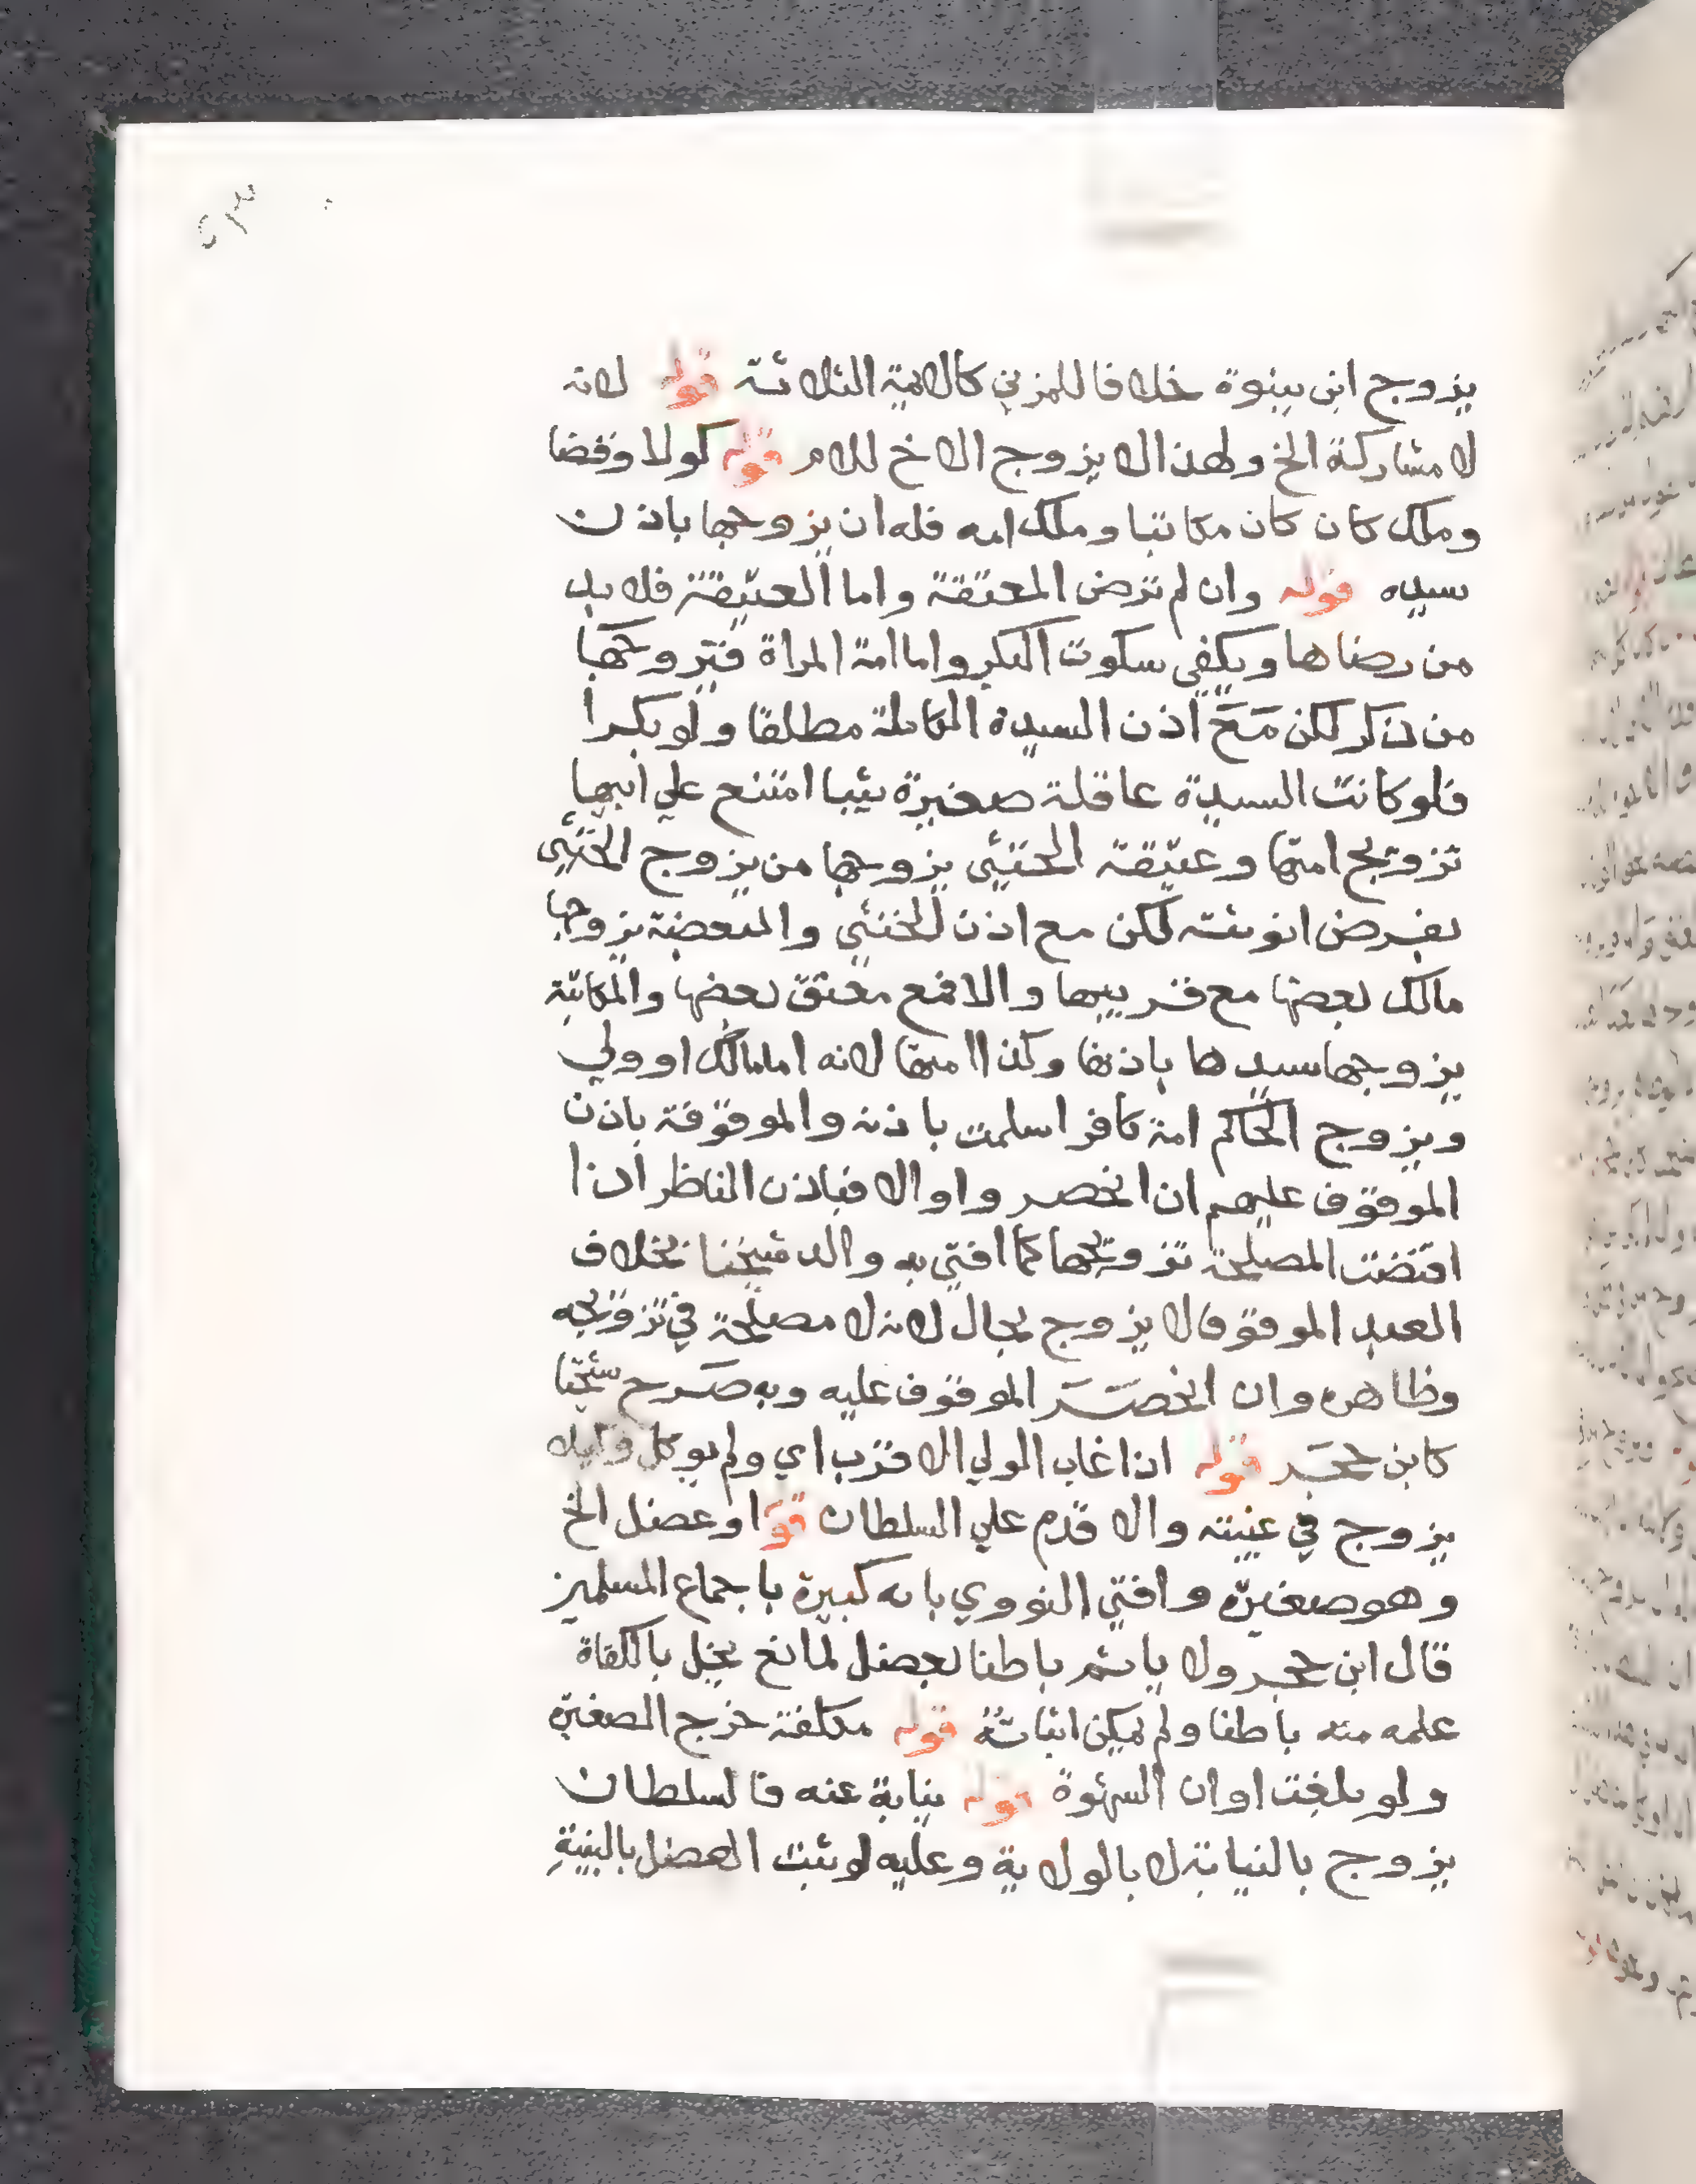 يزوج ابن ببنوة خلافا للمزني كالايمة الثلاثة قوله لانه
لا مشاركة الخ ولهذا لا يزوج الاخ للام قوله كولا وقضا
وملك كان كان مكاتبا وملك امه فله ان يزوجها باذن
سيده قوله وان لم ترض المعتقة واما العتيقة فلا بد
من رضاها ويكفي سكوت البكر واما امة المراة فيزوجها
من ذكر لكن مَعَ اذن السيدة الكاملة مطلقا ولو بكرا
فلو كانت السيدة عاقلة صغيرة ثيبا امتنع علي ابيها
تزويج امتها وعتيقة الخنثي يزوجها من يزوج الخنثي
بفرض انوثته لكن مع اذن الخنثي والمبعضة يزوجها
مالك بعضها مع قريبها والا فمع معتق بعضها والمكاتبة
يزوجها سيدها باذنها وكذا امتها لانه اما مالك او ولي
ويزوج الحاكم امة كافر اسلمت باذنه والموقوفة باذن
الموقوف عليهم ان انحصروا والا فباذن الناظر اذا
اقتضت المصلحة تزويجها كما افتي به والد شيخنا بخلاف
العبد الموقوف لا يزوج بحال لانه لا مصلحة في تزويجه
وظاهره وان انحصَرَ الموقوف عليه وبه صَرح شيخنا
كابن حجَر قوله اذا غاب الولي الاقرب اي ولم يوكل وكيلا
يزوج في غيبته والا قدم علي السلطان قو او عضل الخ
وهو صغيرة وافتي النووي بانه كبيرة باجماع المسلمين
قال ابن حجر ولا ياثم باطنا بعضل لمانع يخل بالكفاة
علمه منه باطنا ولم يمكن اثباتهُ قوله مكلفة خرج الصغيرة
ولو بلغت اوان الشهوة قوله نيابة عنه فالسلطان
يزوج بالنيابة لا بالولاية وعليه لو ثبت العضل بالبينةِ